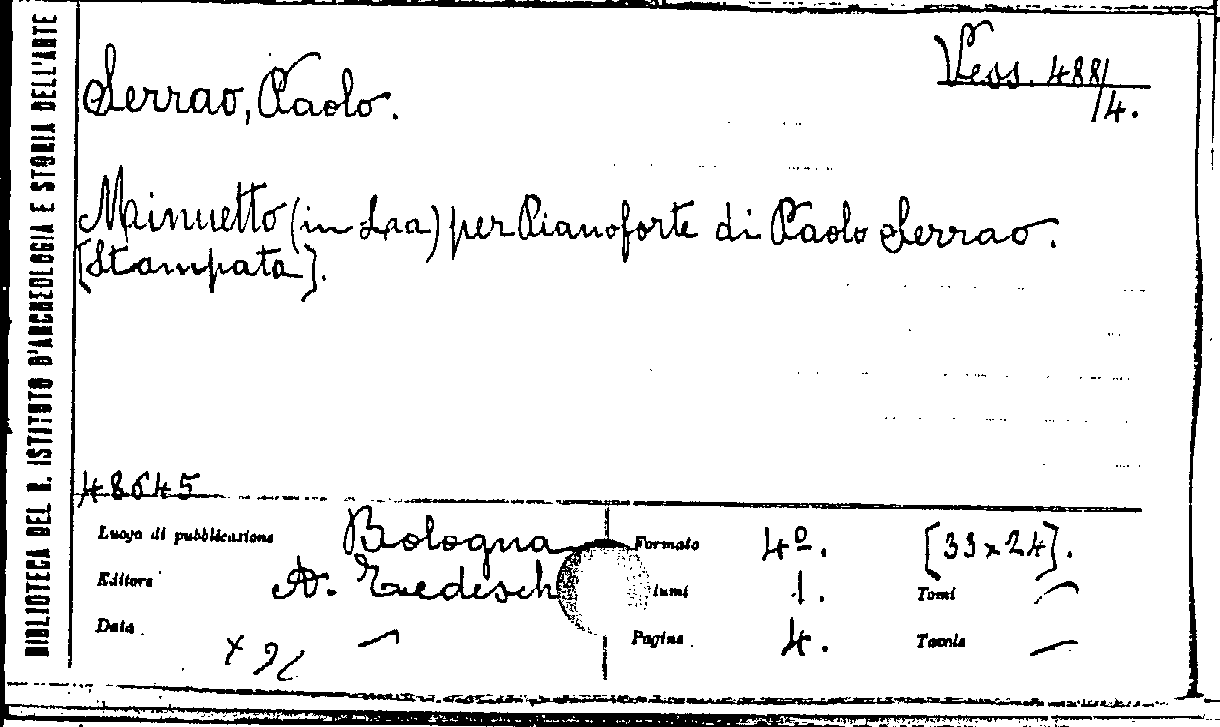 BIBLIOTECA DEL R. ISTITUTO D'ARCHEOLOGIA E STORIA DELL'ARTE
Vess. 488/
/4.
Serrao, Paolo.
Minuetto (in La) per Pianoforte di Paolo Serrao.
[Stampata].
48645
Luogo di pubblicazione Bologna Formato 4º. [33x24].
Editore A. Tedesch lumi 1. Tomi —
Data — Pagine 4. Tavole —